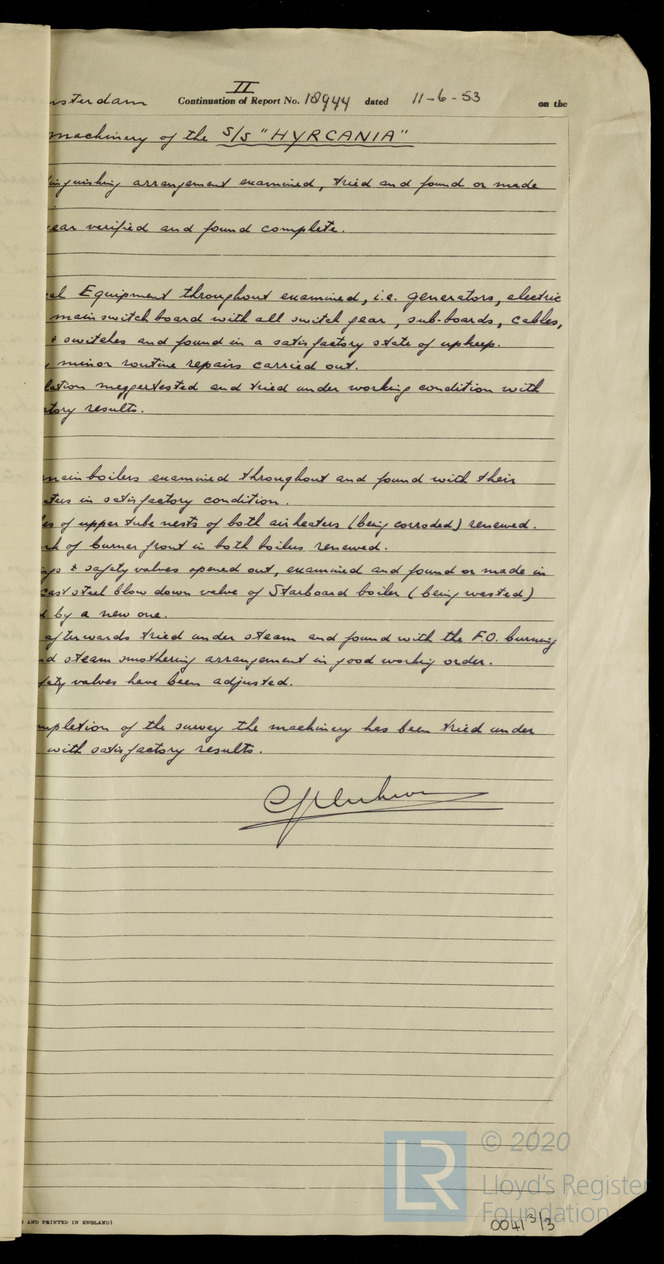 II
sterdam Continuation of Report No. 18944 dated 11-6-53 on the
machinery of the S/S "HYRCANIA"
inguishing arrangement examined, tried and found or made
ear verified and found complete.
al Equipment throughout examined, i.e. generators, electric
main switch board with all switch gear, sub-boards, cables,
& switches and found in a satisfactory state of upkeep.
minor routine repairs carried out.
lation meggertested and tried under working condition with
tory results.
main boilers examined throughout and found with their
aters in satisfactory condition.
es of upper tube nests of both air heaters (being corroded) renewed.
rk of burner front in both boilers renewed.
gs & safety valves opened out, examined and found or made in
cast steel blow down valve of Starboard boiler (being wasted)
d by a new one.
afterwards tried under steam and found with the F.O. burning
nd steam smothering arrangement in good working order.
fety valves have been adjusted.
mpletion of the survey the machinery has been tried under
with satisfactory results.
AND PRINTED IN ENGLAND)
LR
© 2020
Lloyd's Register
Foundation
0041 3/3